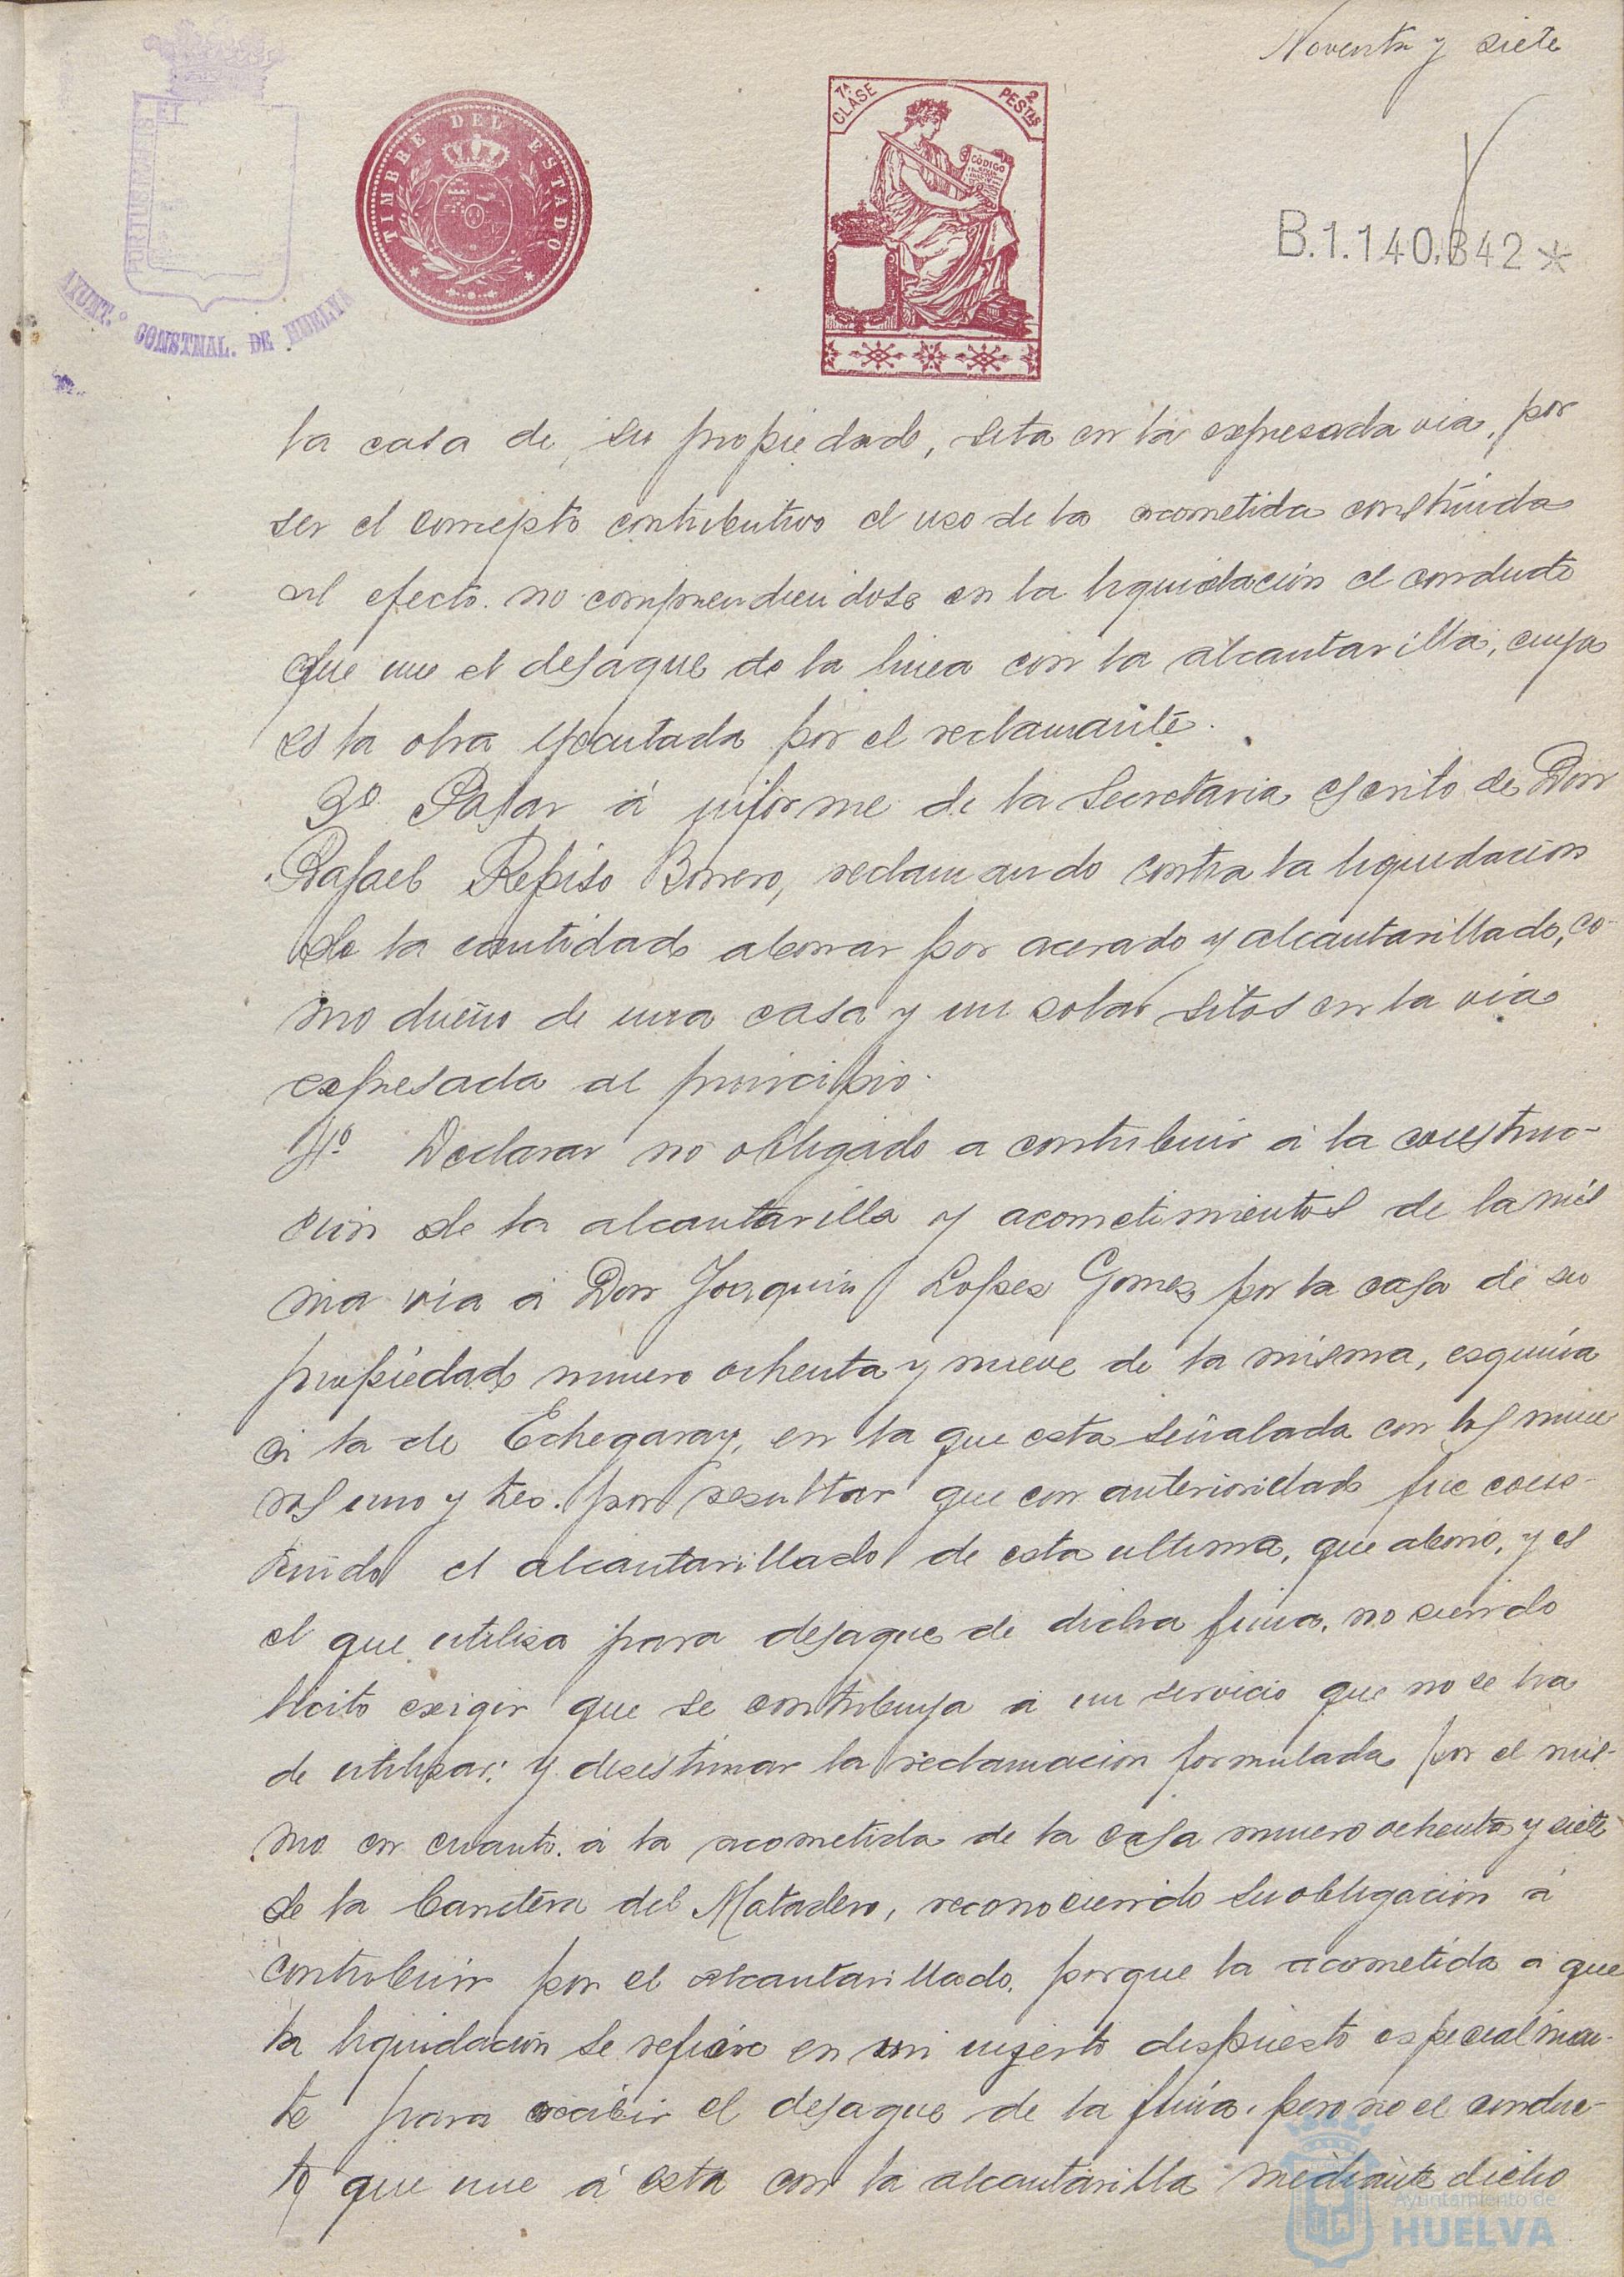 Noventa y siete
TIMBRE DEL ESTADO
7ª CLASE
2 PESTAS
CÓDIGO
B.1.140.842*
AYUNT.º CONSTNAL. DE HUELVA
la casa de su propiedad, sita en la expresada via, por
ser el concepto contributivo el uso de la acometida construida
al efecto. no comprendiendose en la liquidación el conducto
que une el desague de la linea con la alcantarilla, cuya
es la obra ejecutada por el reclamante.
3º Pasar á informe de la Secretaria escrito de Don
Rafael Repiso Borrero, reclamando contra la liquidacion
de la cantidad abonar por acerado y alcantarillado, co-
mo dueño de una casa y un solar sitos en la via
expresada al principio.
4º Declarar no obligado a contribuir á la construc-
ción de la alcantarilla y acometimientos de la mis
ma via á Don Joaquin Lopez Gomez por la casa de su
propiedad numero ochenta y nueve de la misma, esquina
á la de Echegaray, en la que esta señalada con los nume
ros uno y tres. por resultar que con anterioridad fue cons-
truido el alcantarillado de esta ultima, que abonó, y es
el que utiliza para desague de dicha finca, no siendo
licito exigir que se contribuya á un servicio que no se ha
de utilizar: y desestimar la reclamacion formulada por el mis-
mo en cuanto á la acometida de la casa numero ochenta y siete
de la Carretera del Matadero, reconociendo su obligacion á
contribuir por el alcantarillado, porque la acometida á que
la liquidación se refiere en un ingerto dispuesto especialmen-
te para recibir el desague de la finca, pero no el conduc-
to que une á esta con la alcantarilla mediante dicho
Ayuntamiento de
HUELVA